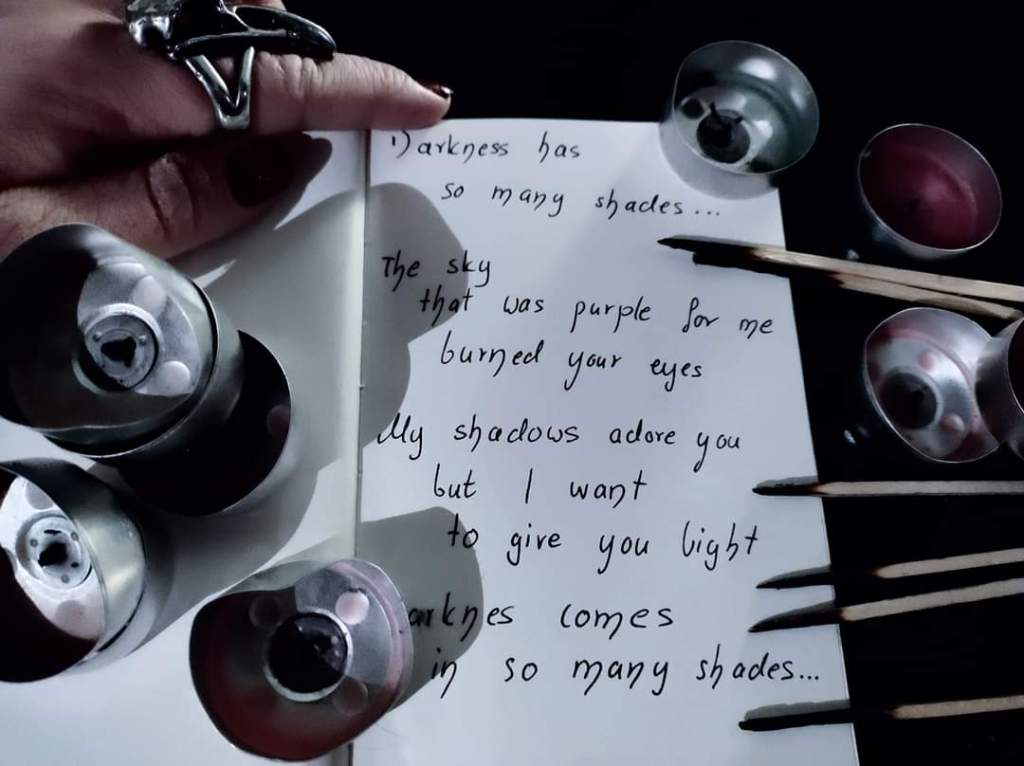 Darkness has
so many shades...
The sky
that was purple for me
burned your eyes
My shadows adore you
but I want
to give you light
arknes comes
in so many shades...